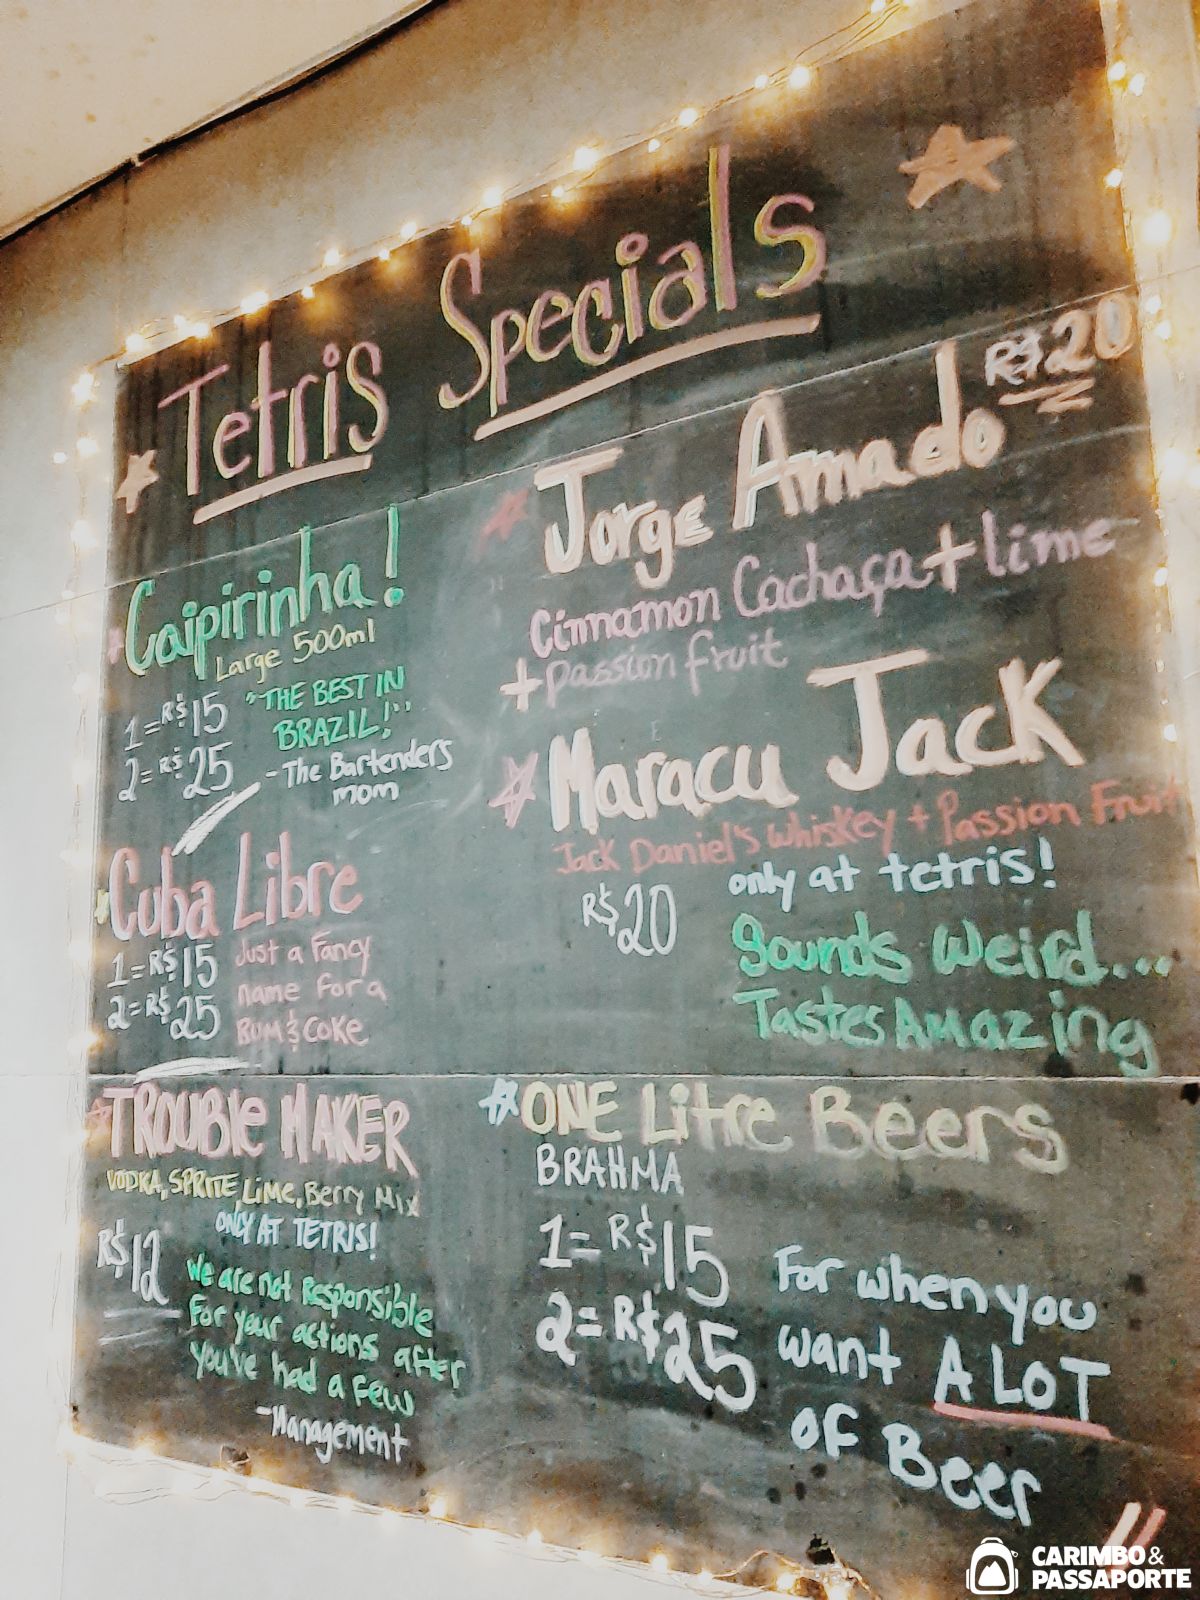 Tetris Specials
Caipirinha!
Large 500ml
1=R$15
2=R$25
"THE BEST IN
BRAZIL!"
-The Bartenders
mom
Cuba Libre
1=R$15
2=R$25
Just a Fancy
name for a
Rum & Coke
TROUBLE MAKER
VODKA, SPRITE, Lime, Berry Mix
ONLY AT TETRIS!
R$12
We are not Responsible
For your actions after
you've had a few
-Management
Jorge Amado R$20
Cinnamon Cachaça + lime
+ passion fruit
Maracu Jack
Jack Daniel's Whiskey + Passion Fruit
R$20
only at tetris!
Sounds Weird...
Tastes Amazing
ONE Litre Beers
BRAHMA
1=R$15
2=R$25
For when you
want A LOT
of Beer
CARIMBO &
PASSAPORTE